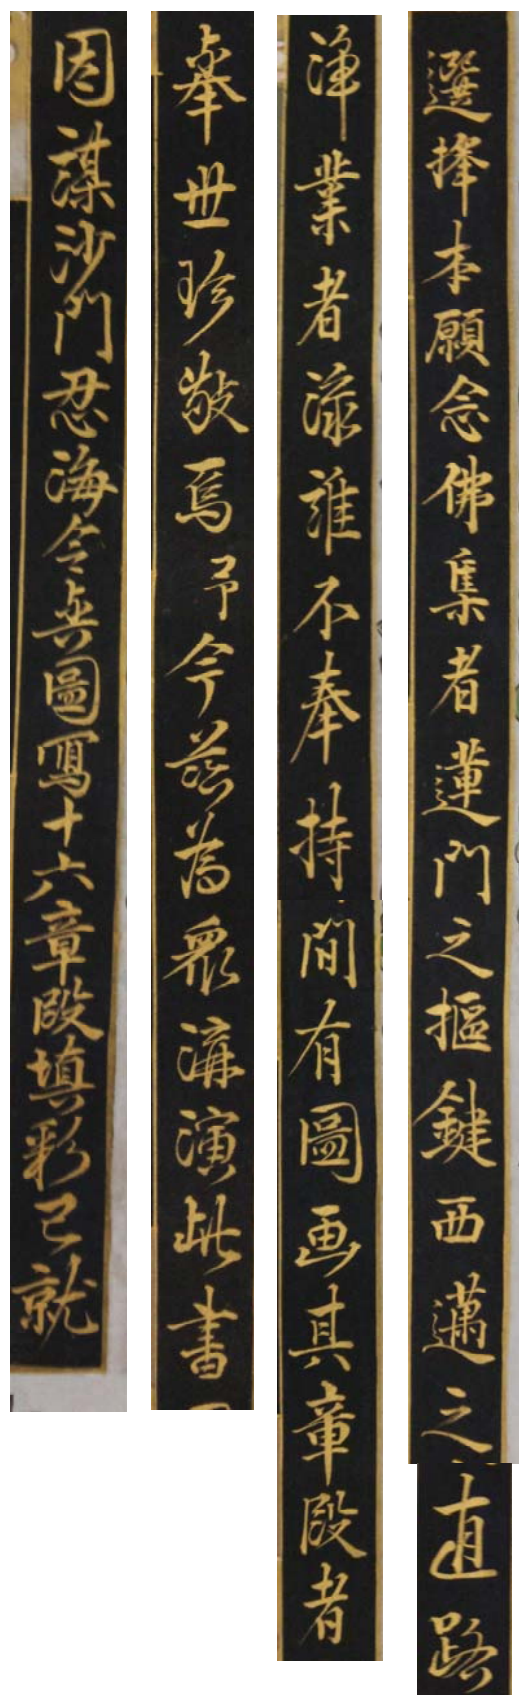 選擇本願念佛集者蓮門之樞鍵西邁之直路
淨業者流誰不奉持間有圖画其章段者
舉世珍敬焉予今茲為眾講演此書
因謀沙門忍海令其圖寫十六章段填彩已就